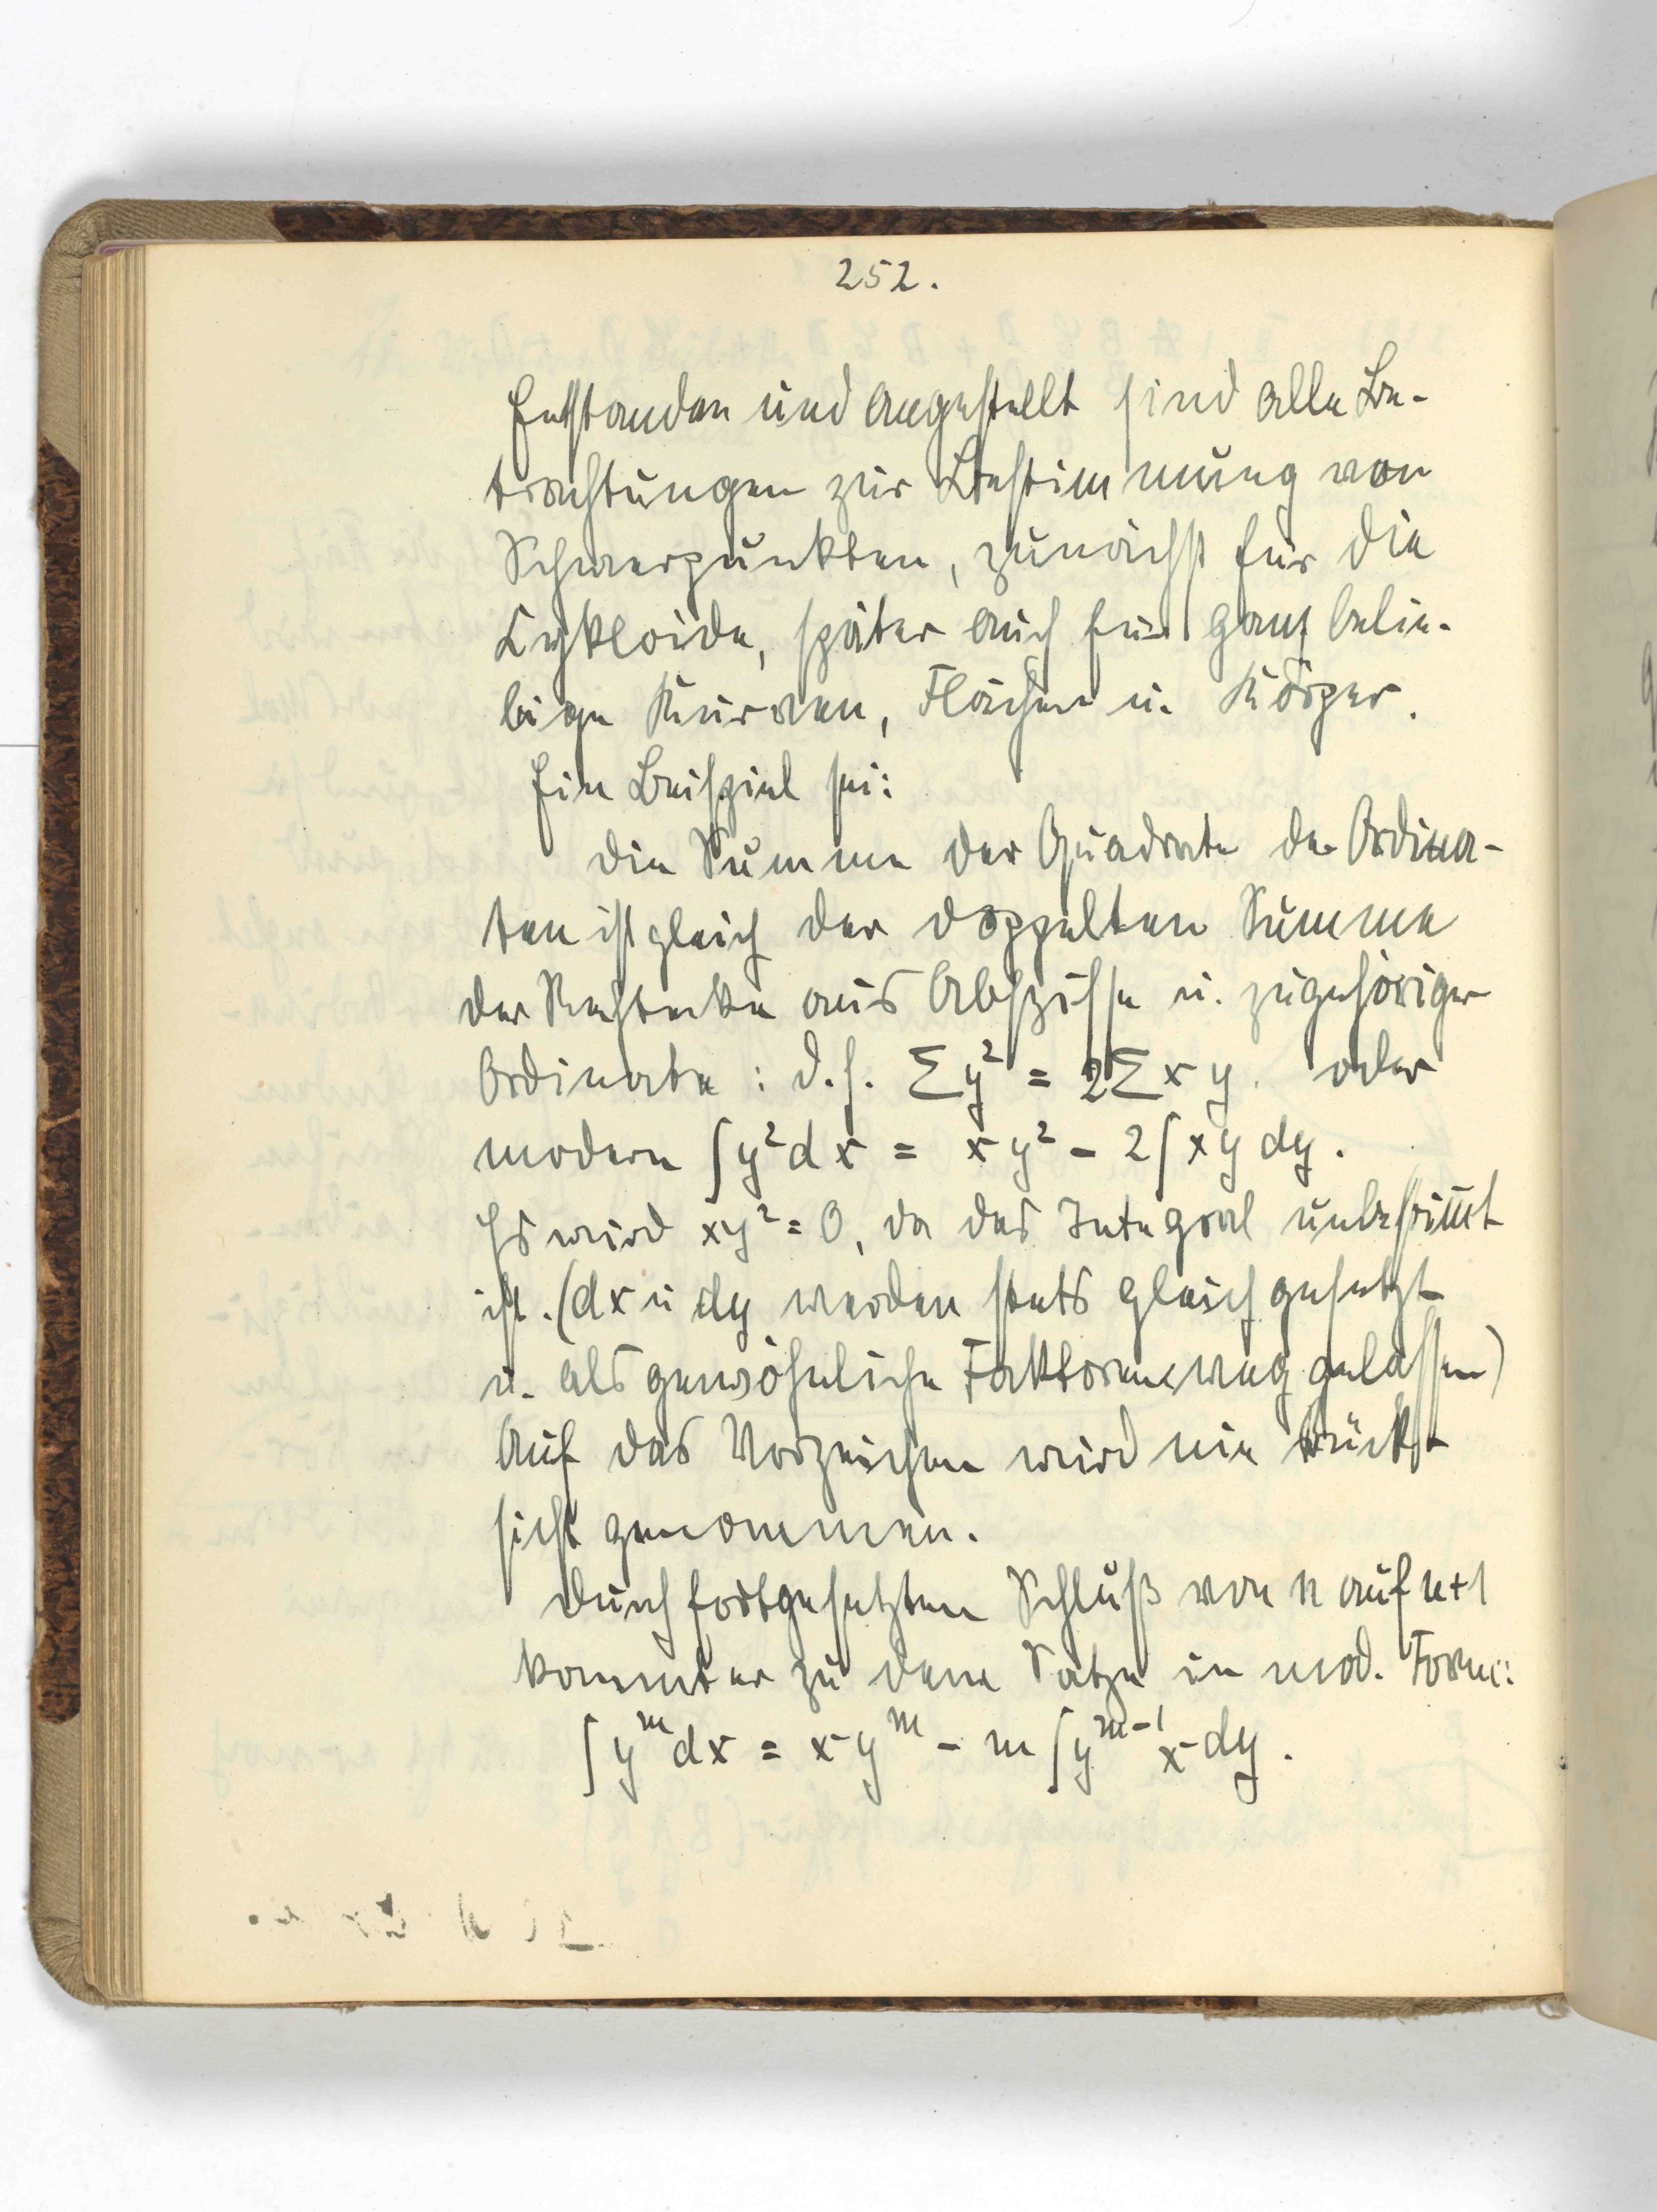 252.
Entstanden und angestellt sind alle Be-
trachtungen zur Bestimmung von
Schwerpunkten, zunächst für die
Cykloide, später auch für ganz belie-
bige Kurven, Flächen u. Körper.
Ein Beispiel sei:
Die Summe der Quadrate der Ordina-
ten ist gleich der doppelten Summe
der Rechtecke aus Abszisse u. zugehöriger
Ordinate: d.h. Σy² = 2Σxy. oder
modern ∫y²dx = xy² - 2∫xy dy.
Es wird xy² = 0, da das Integral unbestimmt
ist. (dx u dy werden stets gleich gesetzt
u. als gewöhnliche Faktoren weggelassen)
Auf das Vorzeichen wird nie Rück-
sicht genommen.
Durch fortgesetzten Schluß von n auf n+1
kommt er zu dem Satze in mod. Form:
∫yᵐdx = xyᵐ - m∫yᵐ⁻¹x dy.